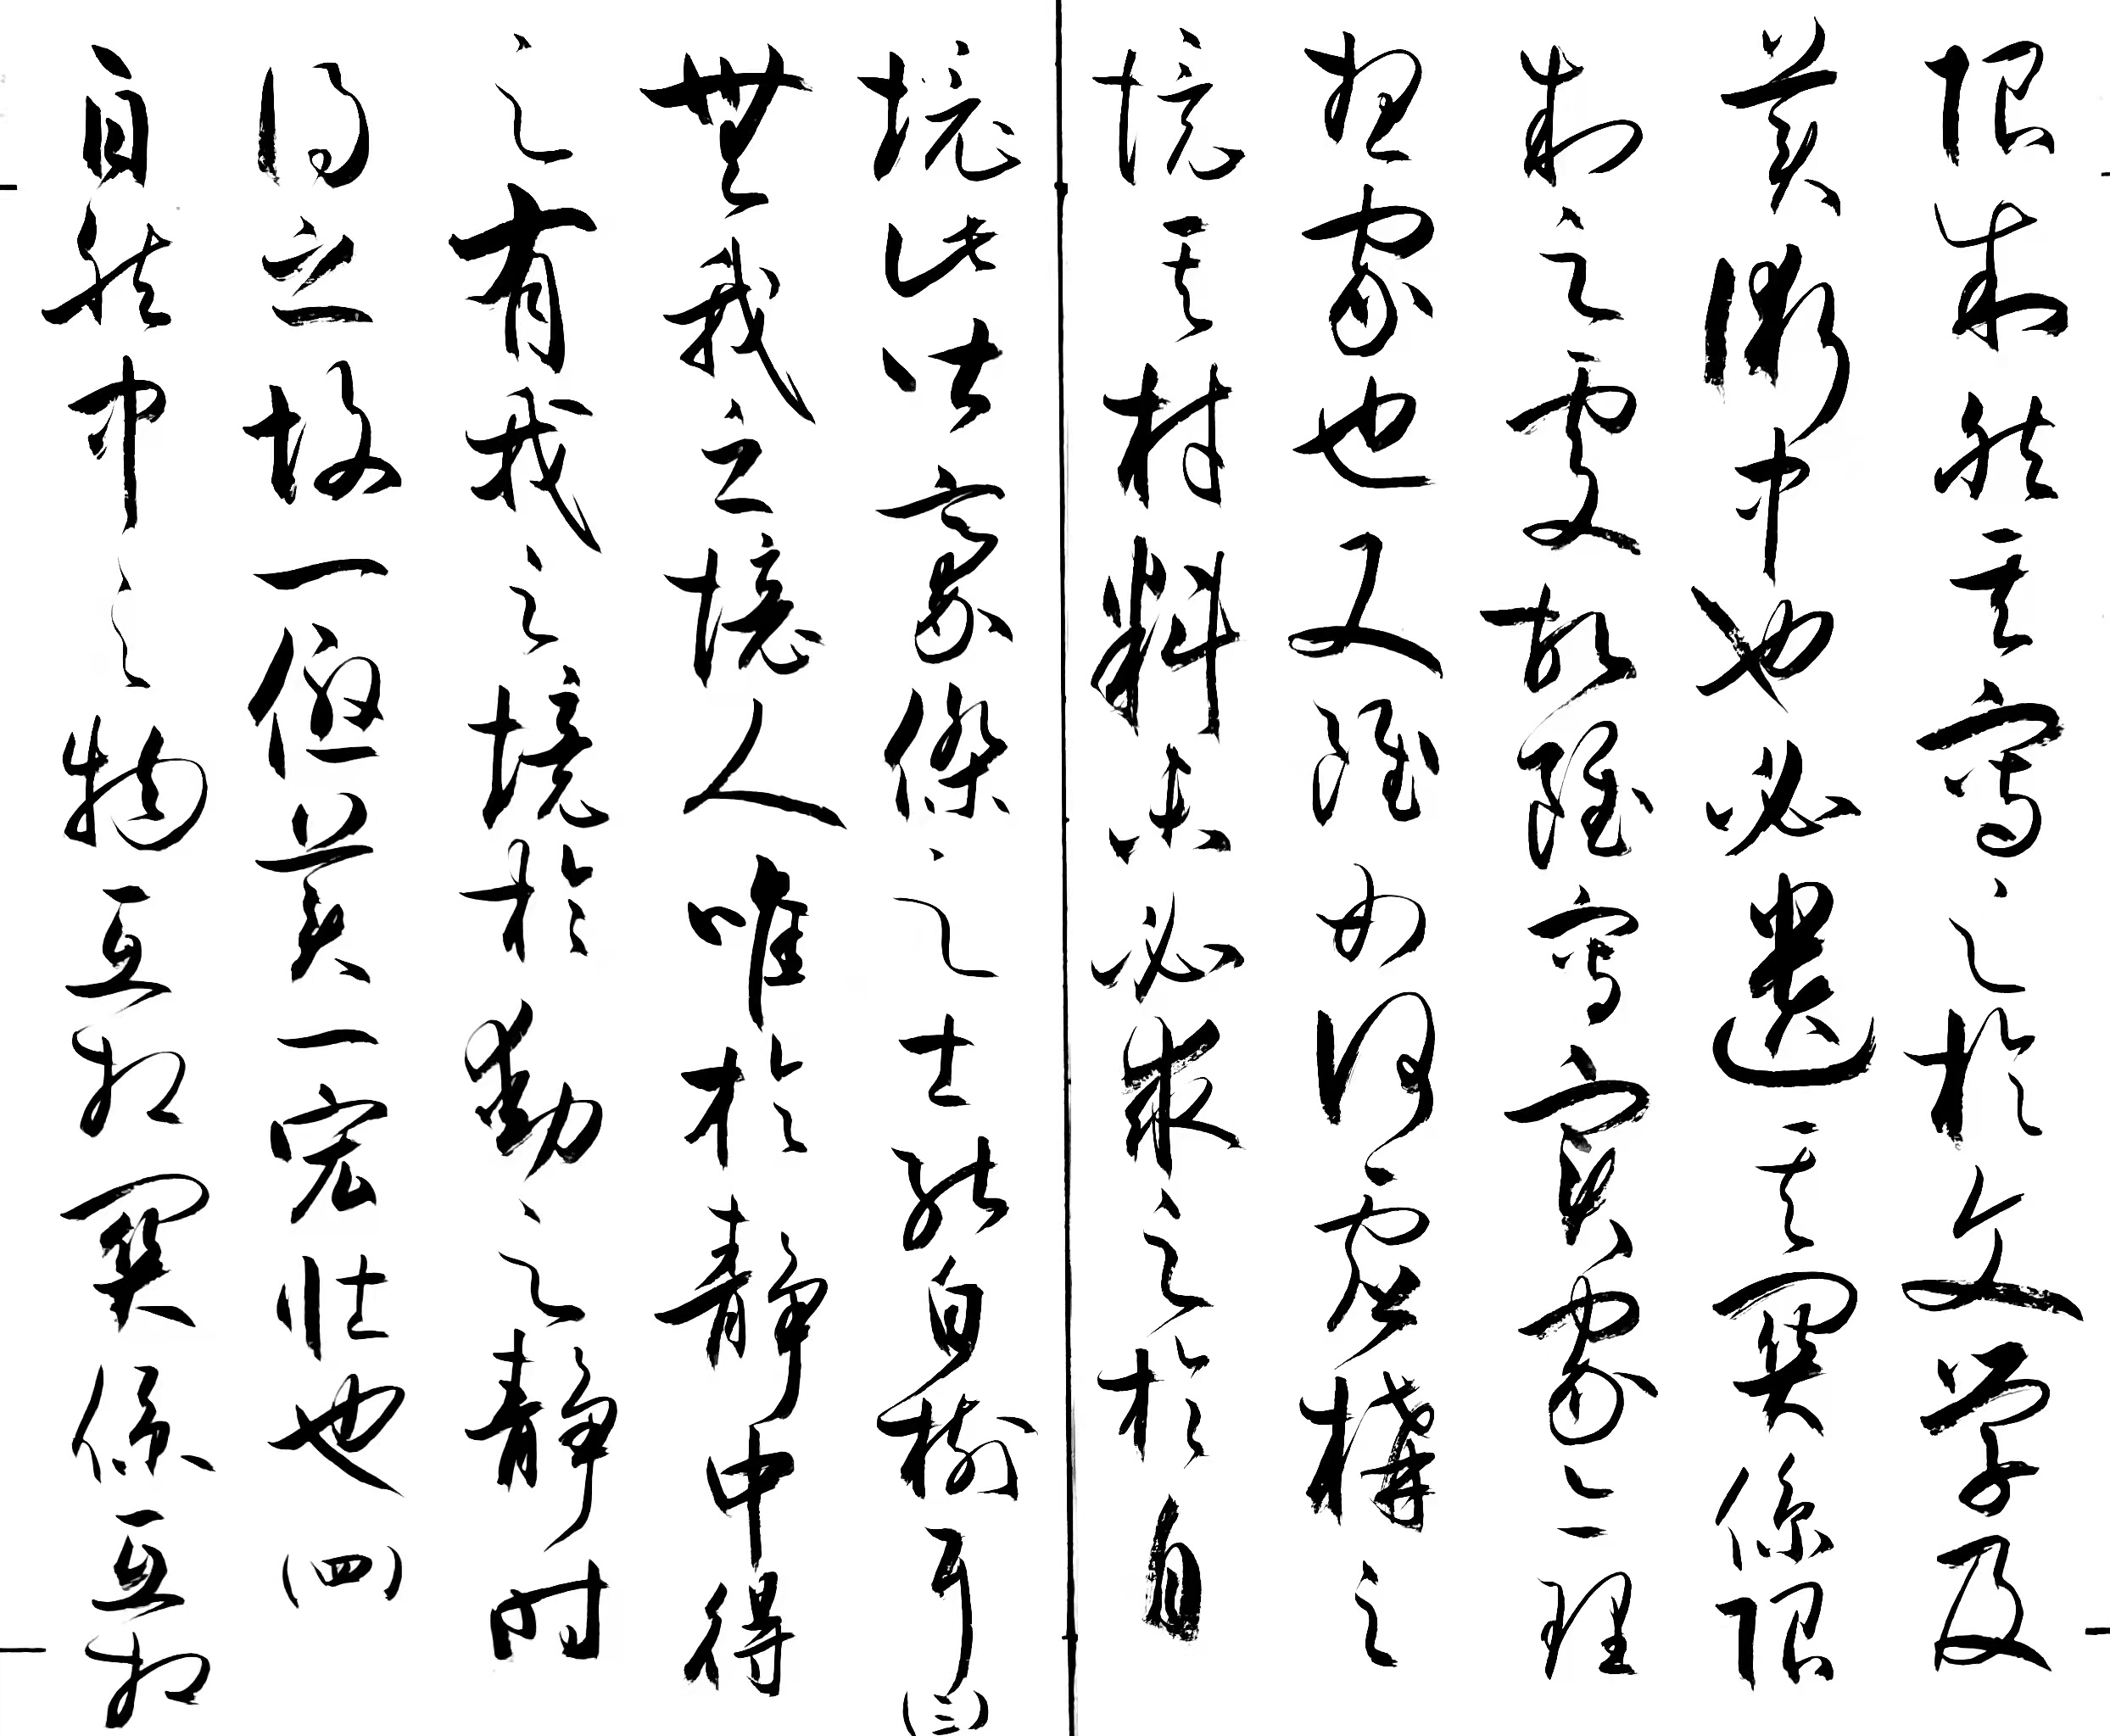 限制然其寫之於文學及
美術中也必遺其關係限
制之處故雖寫實家亦理
想家也又雖如何虛構之
境其材料必求之於自
境此在豪傑之士能自樹耳(三)
無我之境人唯於靜中得
之有我之境於動之靜時
得之故一優美一宏壯也(四)
自然中之物互相關係互相